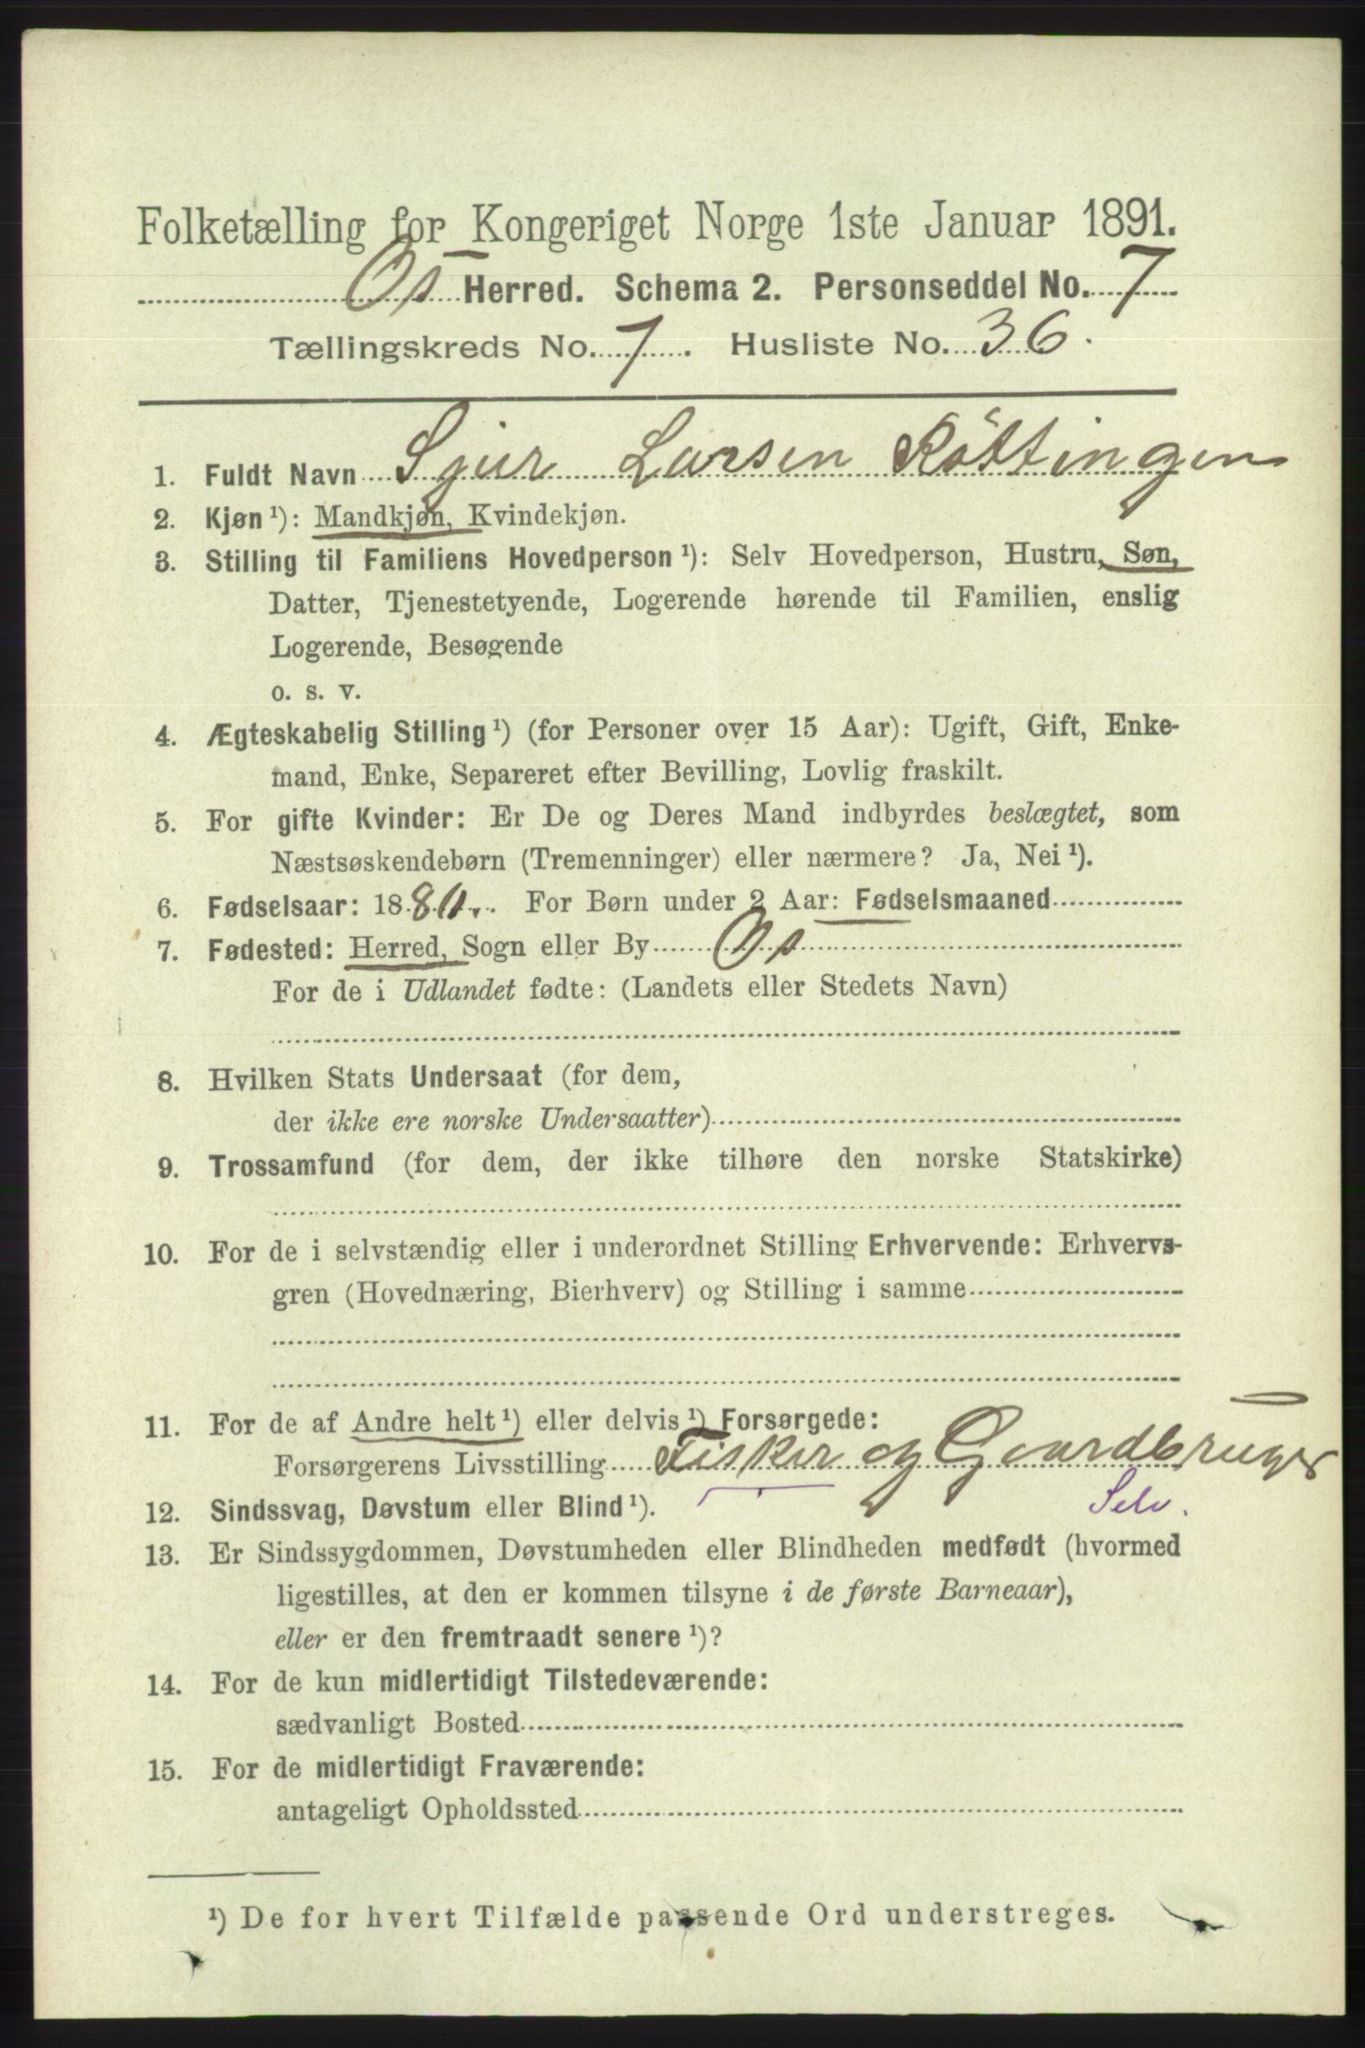 Folketælling for Kongeriget Norge 1ste Januar 1891.
Os Herred. Schema 2. Personseddel No. 7
Tællingskreds No. 7. Husliste No. 36.
1. Fuldt Navn Sjur Larsen Röttingen
2. Kjøn¹): Mandkjøn, Kvindekjøn.
3. Stilling til Familiens Hovedperson¹): Selv Hovedperson, Hustru, Søn,
Datter, Tjenestetyende, Logerende hørende til Familien, enslig
Logerende, Besøgende
o. s. v.
4. Ægteskabelig Stilling¹) (for Personer over 15 Aar): Ugift, Gift, Enke-
mand, Enke, Separeret efter Bevilling, Lovlig fraskilt.
5. For gifte Kvinder: Er De og Deres Mand indbyrdes beslægtet, som
Næstsøskendebørn (Tremenninger) eller nærmere? Ja, Nei¹).
6. Fødselsaar: 18 For Børn under 2 Aar: Fødselsmaaned
7. Fødested: Herred, Sogn eller By Os
For de i Udlandet fødte: (Landets eller Stedets Navn)
8. Hvilken Stats Undersaat (for dem,
der ikke ere norske Undersaatter)
9. Trossamfund (for dem, der ikke tilhøre den norske Statskirke)
10. For de i selvstændig eller i underordnet Stilling Erhvervende: Erhvervs-
gren (Hovednæring, Bierhverv) og Stilling i samme
11. For de af Andre helt¹) eller delvis¹) Forsørgede:
Forsørgerens Livsstilling Fisker og Gaardbruger
Selv.
12. Sindssvag, Døvstum eller Blind¹).
13. Er Sindssygdommen, Døvstumheden eller Blindheden medfødt (hvormed
ligestilles, at den er kommen tilsyne i de første Barneaar),
eller er den fremtraadt senere¹)?
14. For de kun midlertidigt Tilstedeværende:
sædvanligt Bosted
15. For de midlertidigt Fraværende:
antageligt Opholdssted
¹) De for hvert Tilfælde passende Ord understreges.